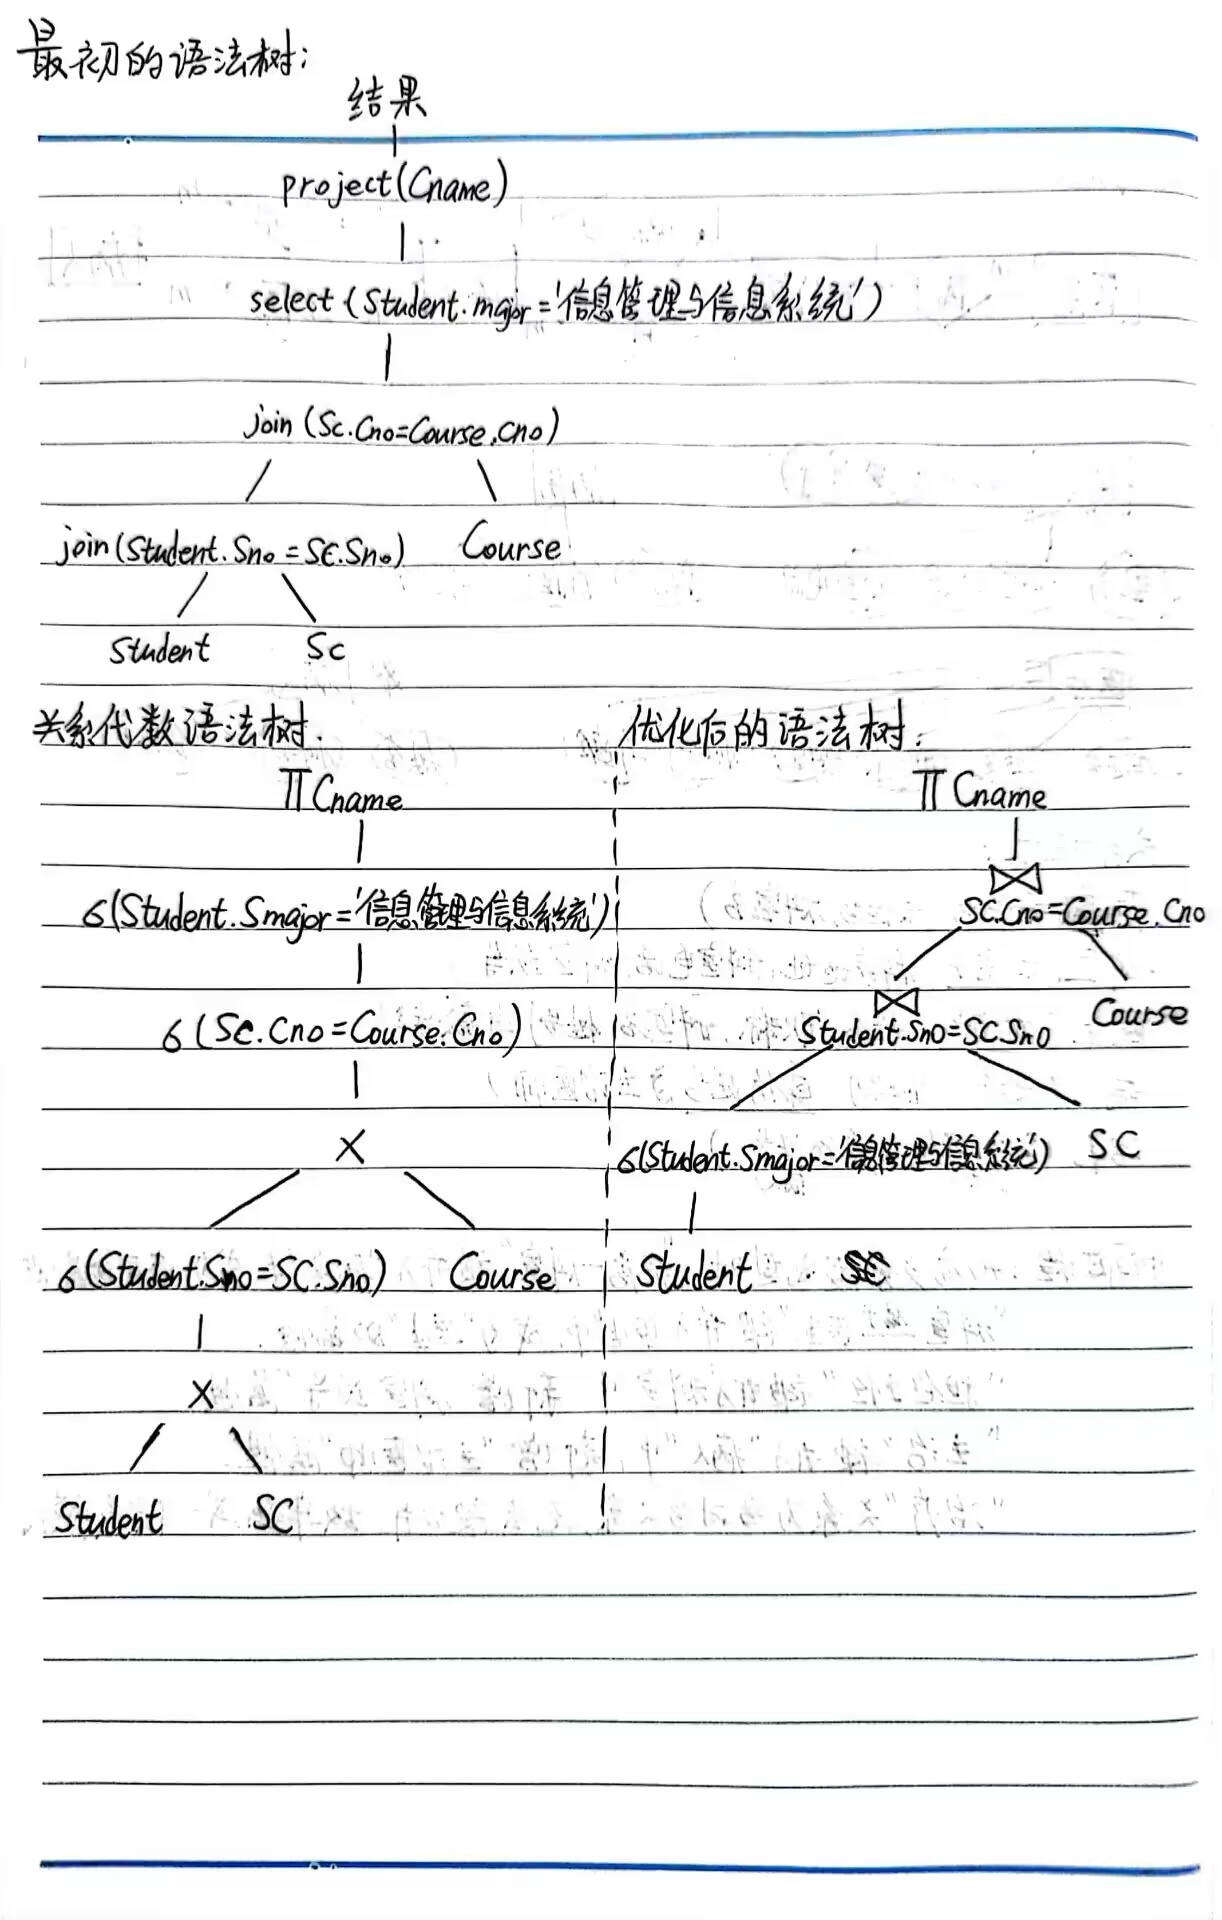 最初的语法树:
结果
project(Cname)
select (Student.major='信息管理与信息系统')
join (Sc.Cno=Course.Cno)
join(Student.Sno=SC.Sno) Course
Student Sc
关系代数语法树.
∏ Cname
6(Student.Smajor='信息管理与信息系统')
6(SC.Cno=Course.Cno)
×
6(Student.Sno=SC.Sno) Course
×
Student SC
优化后的语法树:
∏ Cname
⋈
SC.Cno=Course.Cno
⋈ Course
Student.Sno=SC.Sno
6(Student.Smajor='信息管理与信息系统') SC
Student